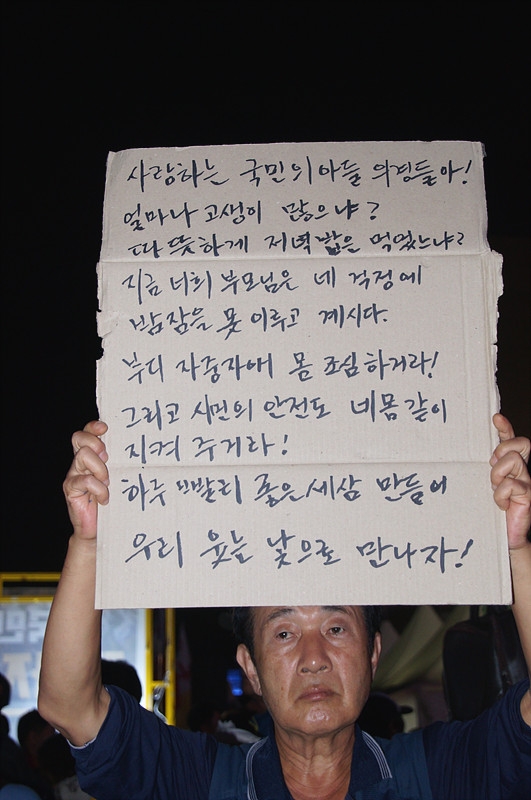 사랑하는 국민의 아들 의경들아!
얼마나 고생이 많으냐?
따뜻하게 저녁밥은 먹었느냐?
지금 너희 부모님은 네 걱정에
밤잠을 못 이루고 계시다.
부디 자중자애 몸 조심하거라!
그리고 시민의 안전도 네몸같이
지켜 주거라!
하루 빨리 좋은세상 만들어
우리 웃는 낯으로 만나자!